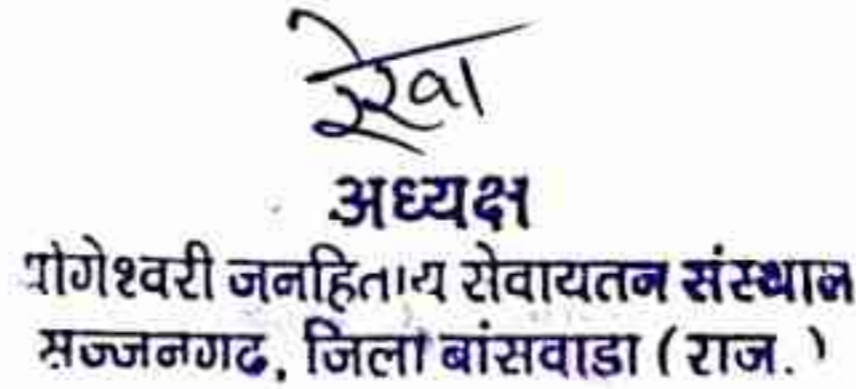 रेखा
अध्यक्ष
योगेश्वरी जनहिताय सेवायतन संस्थान
सज्जनगढ, जिला बांसवाडा (राज.)